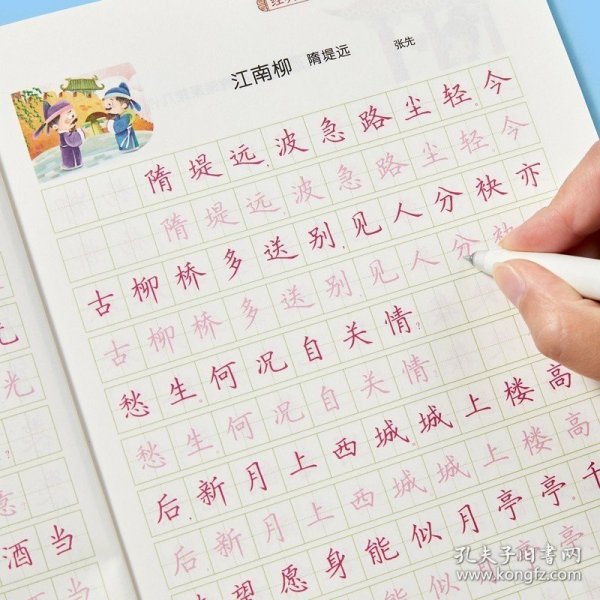 江南柳 隋堤远 张先
隋堤远,波急路尘轻。今
隋堤远,波急路尘轻。今
古柳桥多送别,见人分袂亦
古柳桥多送别,见人分袂
愁生。何况自关情?
愁生。何况自关情?
后,新月上西城。城上楼高
后,新月上西城。城上楼高
望,愿身能似月亭亭。千
能似月亭亭
光
光
意
酒当
孔夫子旧书网
www.kongfz.com